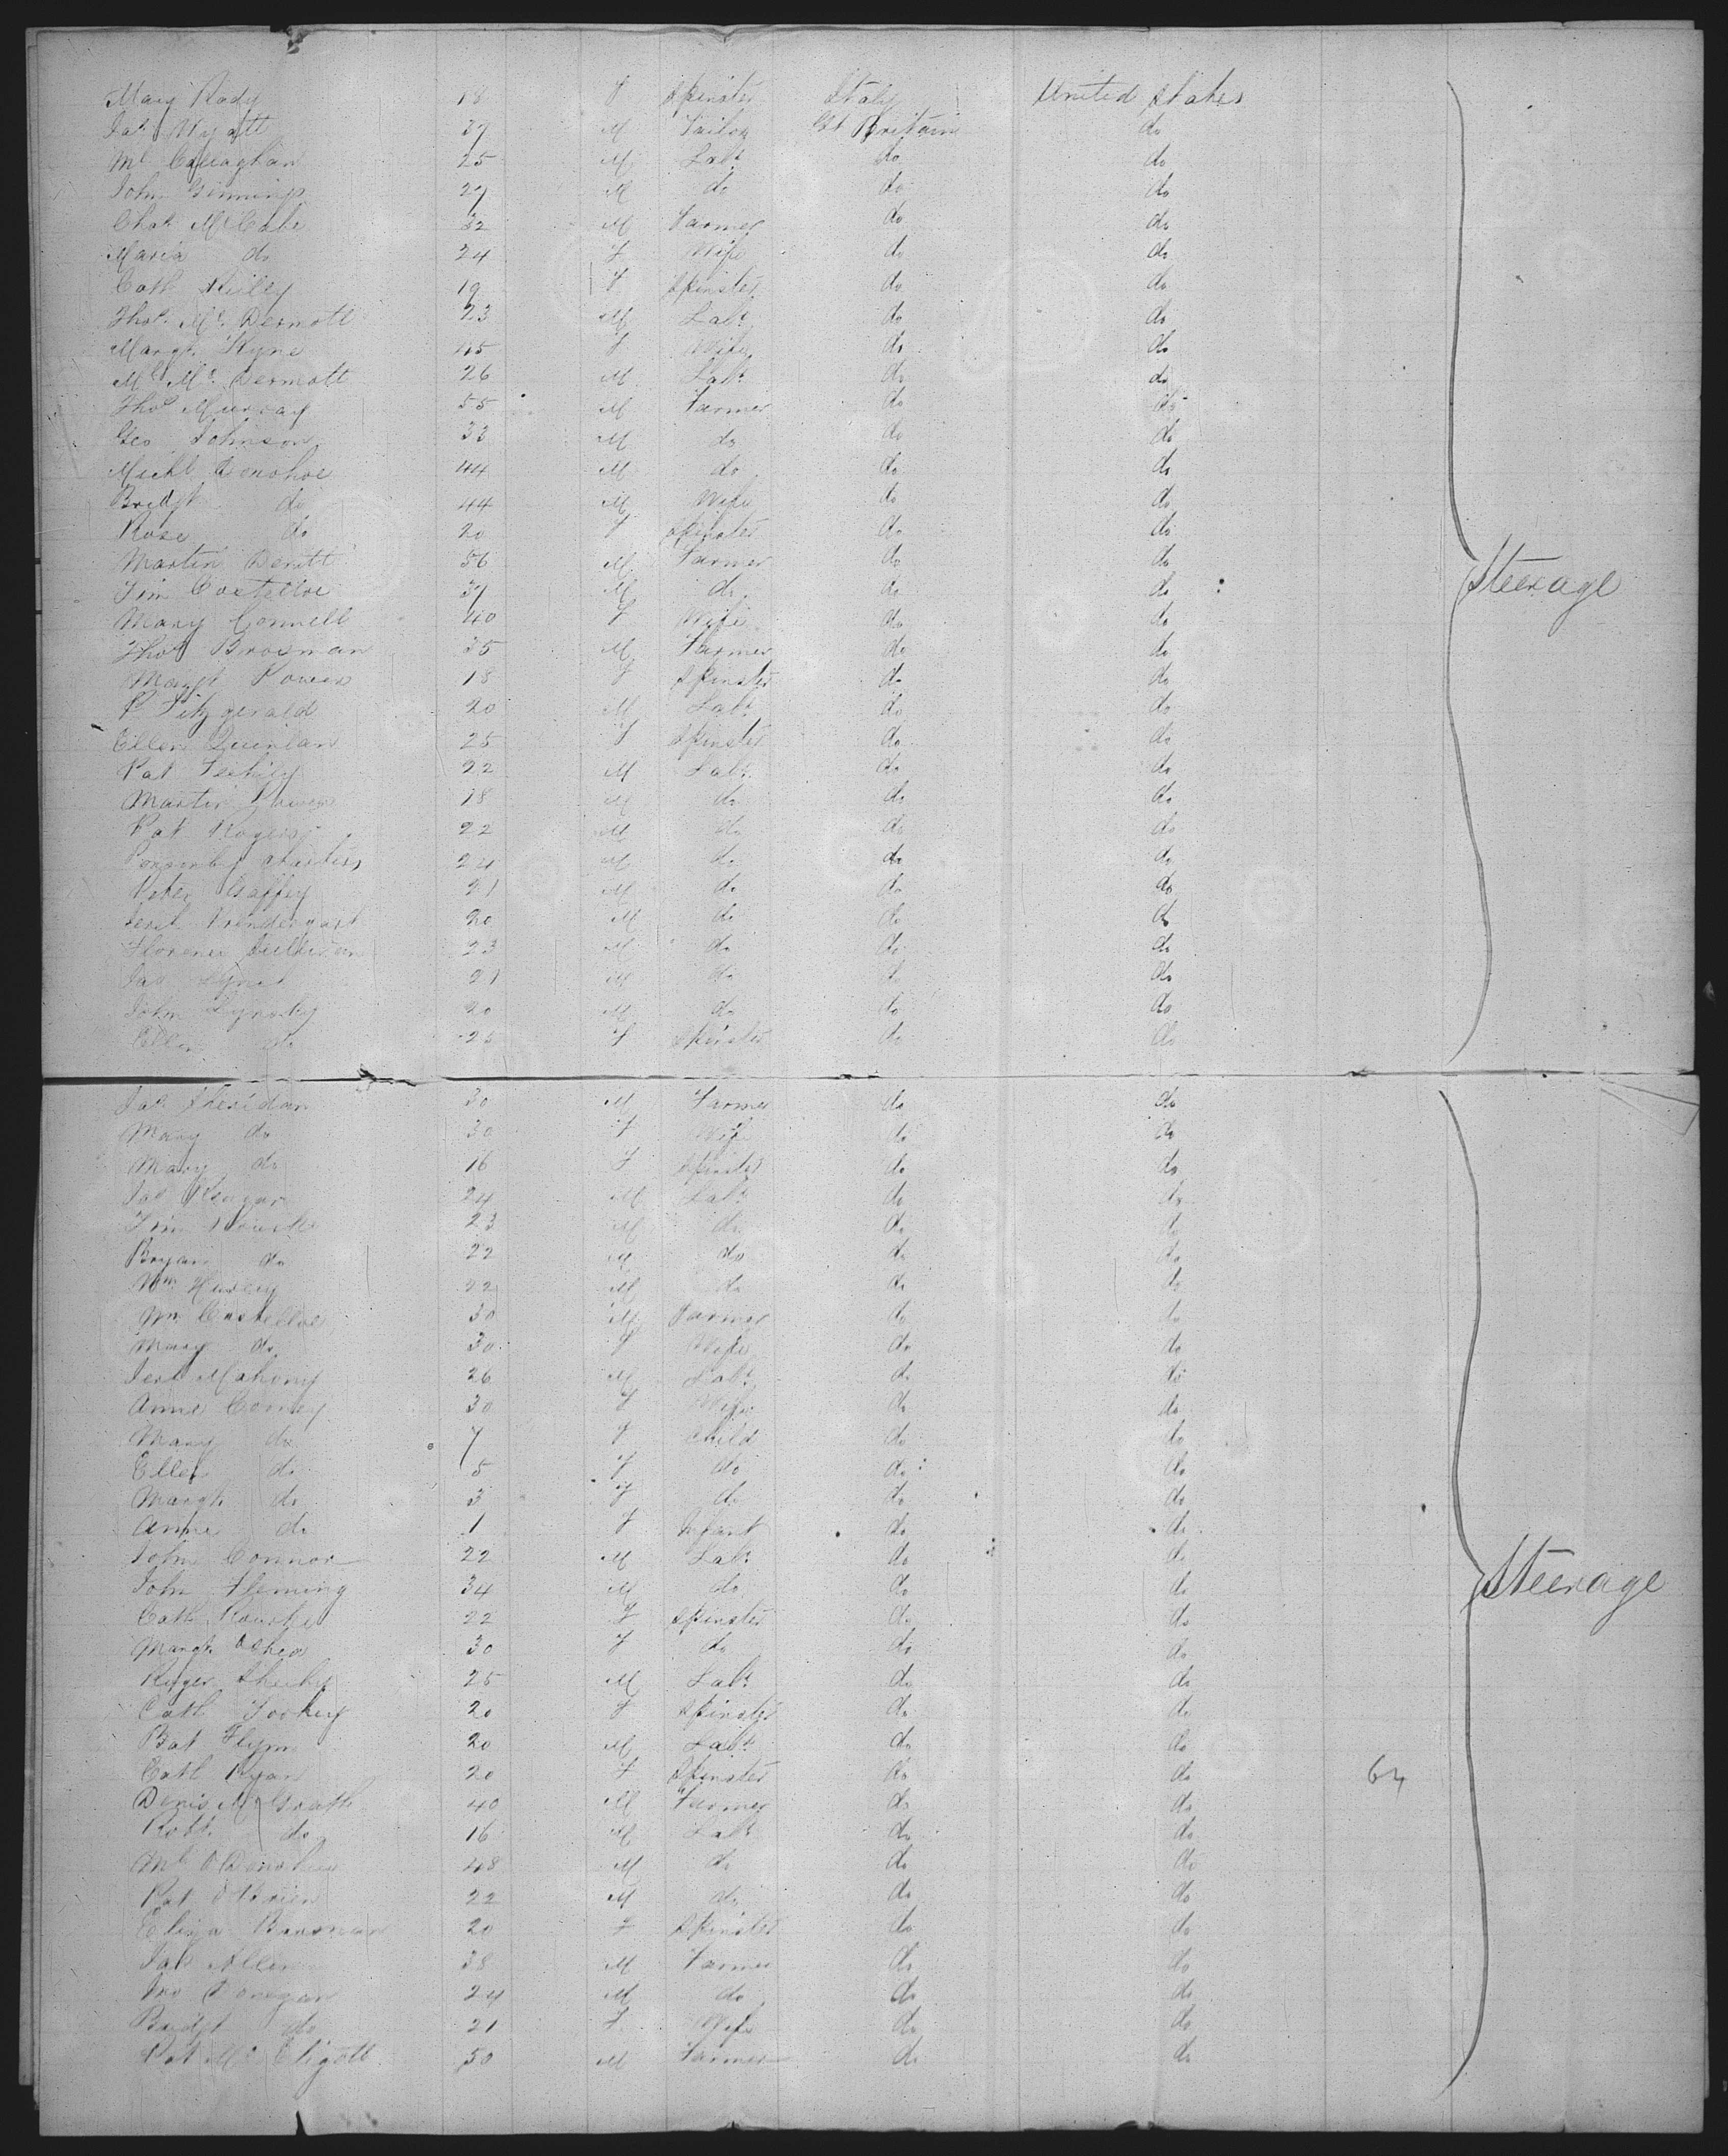 Mary Rady 18 F Spinster Italy United States
Jas Wyatt 37 M Tailor Gt Britain do
Ml Callaghan 25 M Labr do do
John Jennings 27 M do do do
Chas McCabe 32 M Farmer do do
Maria do 24 F Wife do do
Cath Reilly 19 F Spinster do do
Thos McDermott 23 M Labr do do
Margt Kyne 45 F Wife do do
Ml McDermott 26 M Labr do do
Thos Murray 55 M Farmer do do
Geo Johnson 33 M do do do
Michl Donohoe 44 M do do do
Bridgt do 44 M Wife do do
Rose do 20 F Spinster do do
Martin 56 M Farmer do do
Steerage
Tim Costelloe 37 M do do do
Mary Connell 40 F Wife do do
Thos Brosnan 35 M Farmer do do
Margt Power 18 F Spinster do do
P Fitzgerald 20 M Labr do do
Ellen Quinlan 25 F Spinster do do
Pat 22 M Labr do do
Martin Power 18 M do do do
Pat Rogers 22 M do do do
Ponsonby Charters 24 M do do do
Peter Gaffey 21 M do do do
Jerh Prendergast 20 M do do do
Florence Sullivan 23 M do do do
Jas 21 M do do do
John 20 M do do do
Ellen do 25 F Spinster do do
Jas Sheridan 30 M Farmer do do
Mary do 30 F Wife do do
Mary do 16 F Spinster do do
Jas 24 M Labr do do
Tim 23 M do do do
Bryan do 22 M do do do
Wm Hurley 22 M do do do
Wm Costelloe 30 M Farmer do do
Mary do 30 F Wife do do
Jerh Mahony 26 M Labr do do
Anne 30 F Wife do do
Mary do 7 F Child do do
Ellen do 5 F do do do
Margt do 3 F do do do
Anne do 1 F Infant do do
John Connor 22 M Labr do do
John Fleming 34 M do do do
Steerage
Cath Rourke 22 F Spinster do do
Margt OShea 30 F do do do
Roger Sheehy 25 M Labr do do
Cath Toohey 20 F Spinster do do
Bat Flynn 20 M Labr do do
Cath Ryan 20 F Spinster do do 64
Denis McGrath 40 M Farmer do do
Robt do 16 M Labr do do
Ml O'Donohue 48 M do do do
Pat O'Brien 22 M do do do
Eliza Brosnan 20 F Spinster do do
Jas Allen 38 M Farmer do do
Jno Donegan 24 M do do do
Bridgt do 21 F Wife do do
Pat McEligott 50 M Farmer do do